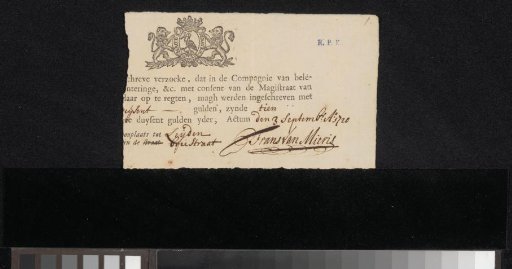 R. P. K.
schreve verzocke, dat in de Compagnie van bele-
nteringe, &c. met consent van de Magistraat van
aar op te regten, magh werden ingeschreven met
gulden, zynde tien
duysent gulden yder, Actum den 2 Septemb. Ao. 1720
onplaats tot Leyden
in de straat
Frans van Mieris